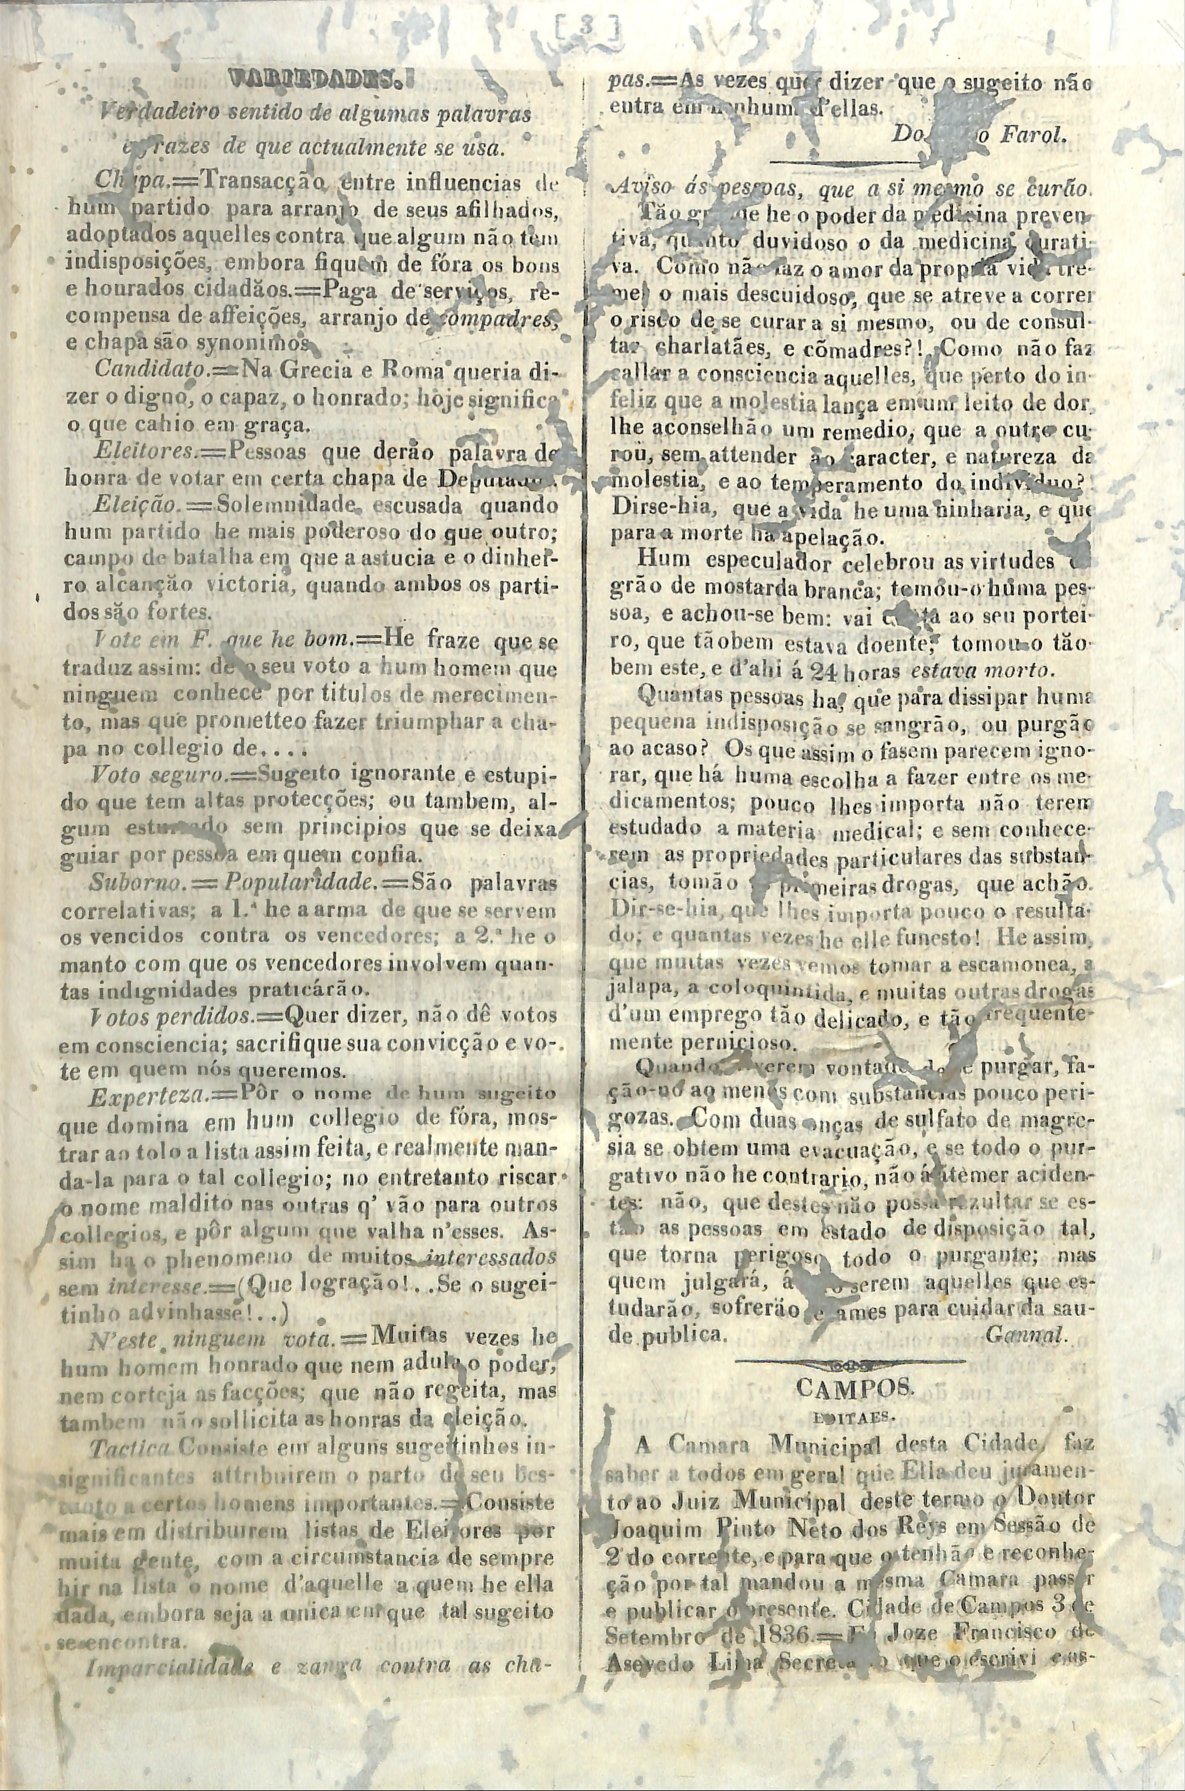 [ 3 ]
VARIEDADES.
Verdadeiro sentido de algumas palavras
e frazes de que actualmente se usa.
Chapa.=Transacção entre influencias de
hum partido para arranjo de seus afilhados,
adoptados aquelles contra que algum não tem
indisposições, embora fiquem de fóra os bons
e honrados cidadãos.=Paga de serviços, re-
compensa de affeições, arranjo de compadres,
e chapa são synonimos.
Candidato.=Na Grecia e Roma queria di-
zer o digno, o capaz, o honrado; hoje significa
o que cahio em graça.
Eleitores.=Pessoas que derão palavra de
honra de votar em certa chapa de Deputados.
Eleição.=Solemnidade, escusada quando
hum partido he mais poderoso do que outro;
campo de batalha em que a astucia e o dinhei-
ro alcanção victoria, quando ambos os parti-
dos são fortes.
Vote em F. que he bom.=He fraze que se
traduz assim: dê o seu voto a hum homem que
ninguem conhece por titulos de merecimen-
to, mas que prometteo fazer triumphar a cha-
pa no collegio de....
Voto seguro.=Sugeito ignorante e estupi-
do que tem altas protecções; ou tambem, al-
gum esturrado sem principios que se deixa
guiar por pessoa em quem confia.
Suborno.=Popularidade.=São palavras
correlativas; a 1.ª he a arma de que se servem
os vencidos contra os vencedores; a 2.ª he o
manto com que os vencedores involvem quan-
tas indignidades praticárão.
Votos perdidos.=Quer dizer, não dê votos
em consciencia; sacrifique sua convicção e vo-
te em quem nós queremos.
Experteza.=Pôr o nome de hum sugeito
que domina em hum collegio de fóra, mos-
trar ao tolo a lista assim feita, e realmente man-
da-la para o tal collegio; no entretanto riscar
o nome maldito nas outras q' vão para outros
collegios, e pôr algum que valha n'esses. As-
sim ha o phenomeno de muitos interessados
sem interesse.=(Que logração!..Se o sugei-
tinho advinhasse!..)
N'este ninguem vota.=Muitas vezes he
hum homem honrado que nem adula o poder,
nem corteja as facções; que não regeita, mas
tambem não sollicita as honras da eleição.
Tactica Consiste em alguns sugeitinhos in-
significantes attribuirem o parto de seu bes-
tunto a certos homens importantes.=Consiste
mais em distribuirem listas de Eleitores por
muita gente, com a circumstancia de sempre
hir na lista o nome d'aquelle a quem he ella
dada, embora seja a unica em que tal sugeito
se encontra.
Imparcialidade e zanga contra as cha-
pas.=As vezes quer dizer que o sugeito não
entra em nenhuma d'ellas.
Do Farol.
Aviso ás pessoas, que a si mesmo se curão.
Tão grande he o poder da medicina preven-
tiva, quanto duvidoso o da medicina curati-
va. Como não faz o amor da propria vida tre-
mer o mais descuidoso, que se atreve a correr
o risco de se curar a si mesmo, ou de consul-
tar charlatães, e cõmadres?! Como não faz
callar a consciencia aquelles, que perto do in-
feliz que a molestia lança em um leito de dor,
lhe aconselhão um remedio, que a outro cu-
rou, sem attender ao caracter, e natureza da
molestia, e ao temperamento do individuo?!
Dirse-hia, que a vida he uma ninharia, e que
para a morte ha apelação.
Hum especulador celebrou as virtudes do
grão de mostarda branca; tomou-o huma pes-
soa, e achou-se bem: vai conta ao seu portei-
ro, que tãobem estava doente; tomou-o tão-
bem este, e d'ahi á 24 horas estava morto.
Quantas pessoas ha, que para dissipar huma
pequena indisposição se sangrão, ou purgão
ao acaso? Os que assim o fasem parecem igno-
rar, que há huma escolha a fazer entre os me-
dicamentos; pouco lhes importa não terem
estudado a materia medical; e sem conhece-
rem as propriedades particulares das substan-
cias, tomão as primeiras drogas, que achão.
Dir-se-hia, que lhes importa pouco o resulta-
do; e quantas vezes he elle funesto! He assim,
que muitas vezes vemos tomar a escamonea, a
jalapa, a coloquintida, e muitas outras drogas
d'um emprego tão delicado, e tão frequente-
mente pernicioso.
Quando tiverem vontade de se purgar, fa-
ção-no ao menos com substancias pouco peri-
gozas. Com duas onças de sulfato de magre-
sia se obtem uma evacuação, e se todo o pur-
gativo não he contrario, não á a temer aciden-
tes: não, que destes não possa rezultar se es-
tão as pessoas em estado de disposição tal,
que torna perigoso todo o purgante; mas
quem julgará, á não serem aquelles que es-
tudarão, sofrerão exames para cuidar da sau-
de publica. Gannal.
CAMPOS.
EDITAES.
A Camara Municipal desta Cidade, faz
saber a todos em geral que Ella deu juramen-
to ao Juiz Municipal deste termo o Doutor
Joaquim Pinto Neto dos Reys em Sessão de
2 do corrente, e para que o tenhão e reconhe-
ção por tal mandou a mesma Camara passar
e publicar o presente. Cidade de Campos 3 de
Setembro de 1836.=Eu Joze Francisco de
Asevedo Lima Secretario que o escrivi e as-